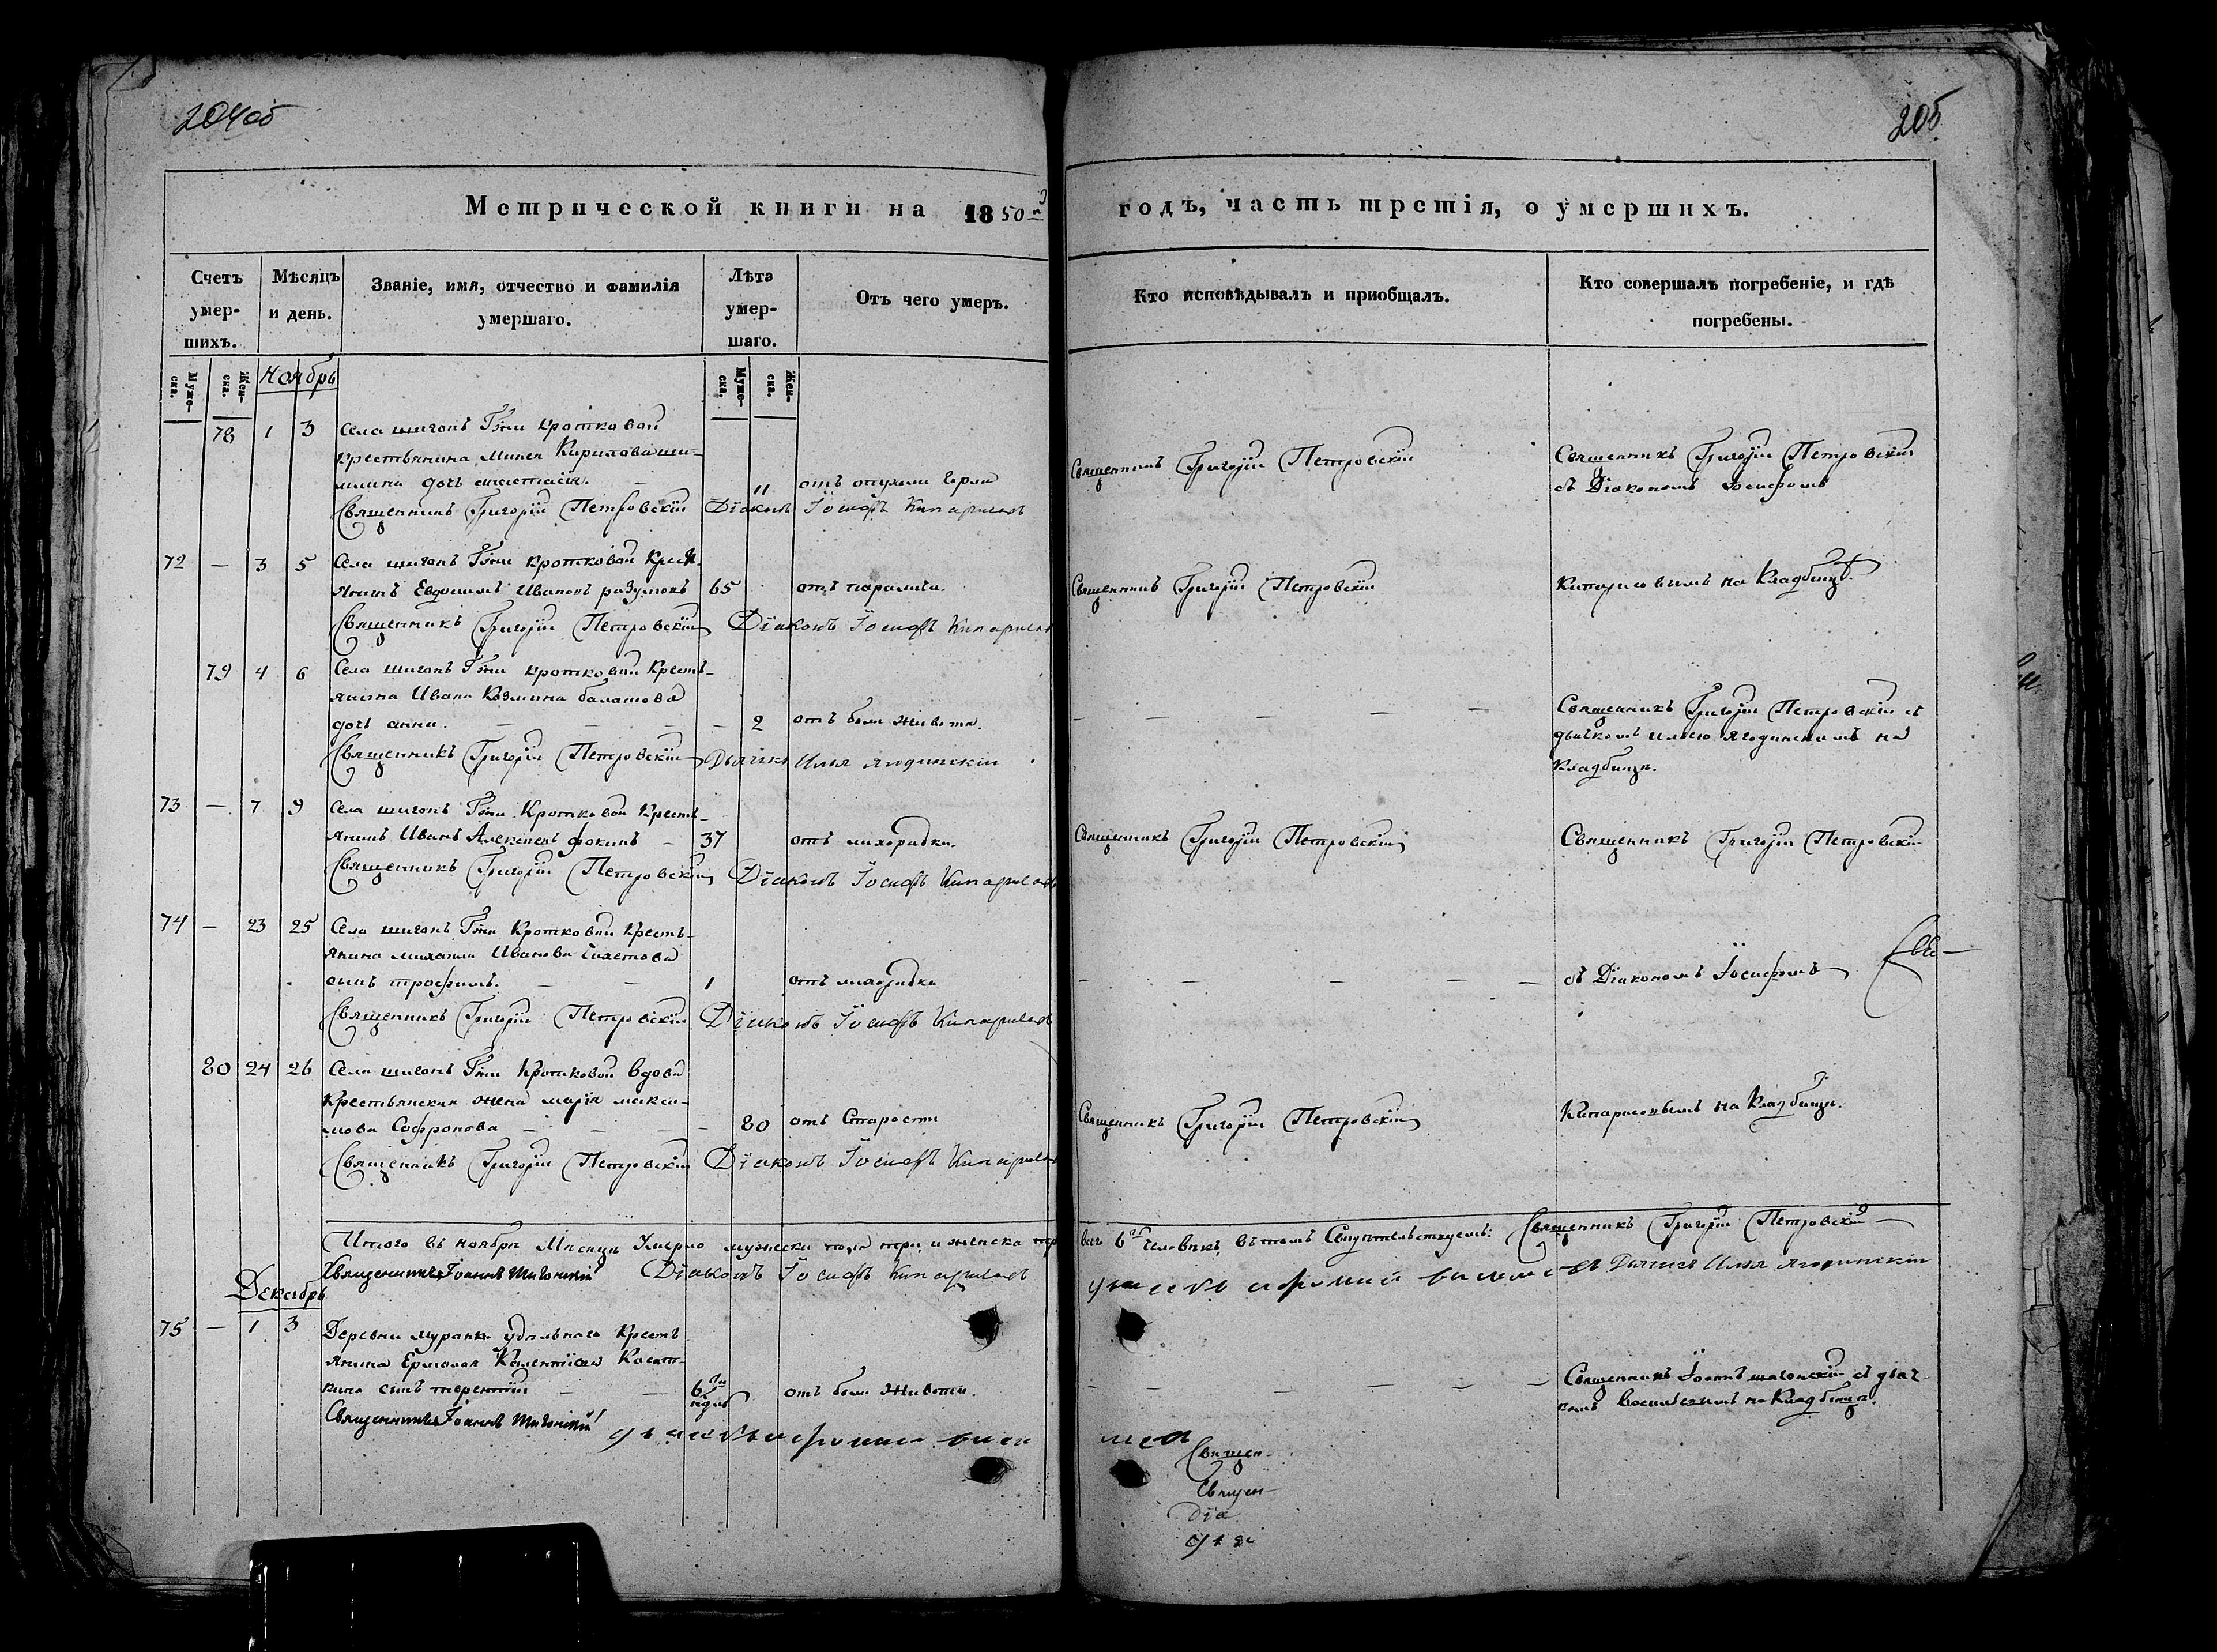 204об
205
Метрической книги на 1850й
годъ, часть третія, о умершихъ.
Счетъ умер-
шихъ.
Мѣсяцъ
и день.
Званіе, имя, отчество и фамилія
умершаго.
Лѣта
умер-
шаго.
Отъ чего умеръ.
Кто исповѣдывалъ и приобщалъ.
Кто совершалъ погребеніе, и гдѣ
погребены.
Муже-
ска.
Жен-
ска.
Ноябрь
Муже-
ска.
Жен-
ска.
78 1 3 Села шигонъ Гжи Кротковой
Крестьянина Кирилова
дочь 11 отъ опухоли горла
Священникъ Григорій Петровскій
Священникъ Григорій Петровскій
съ Діакономъ Іосифомъ
Священникъ Григорій Петровскій Діаконъ Іосифъ Кипарисовъ
72 — 3 5 Села шигонъ Гжи Кротковой Крест
янинъ Евдокимъ Ивановъ разумовъ 65 отъ паралича.
Священникъ Григорій Петровскій
Кипарисовымъ на Кладбищѣ.
Священникъ Григорій Петровскій Діаконъ Іосифъ Кипарисовъ
79 4 6 Села шигонъ Гжи Кротковой Кресть-
янина Ивана Козмина балашова
дочь анна. — — — 2 отъ боли живота.
— — — — —
Священникъ Григорій Петровскій съ
дьячкомъ Ильею Ягодинскимъ на
Кладбищѣ.
Священникъ Григорій Петровскій Дьячекъ Илья Ягодинскій
73 — 7 9 Села шигонъ Гжи Кротковой Кресть-
янинъ Иванъ Алексѣевъ фокинъ — 37 отъ лихорадки.
Священникъ Григорій Петровскій
Священникъ Григорій Петровскій
Священникъ Григорій Петровскій Діаконъ Іосифъ Кипарисовъ
74 — 23 25 Села шигонъ Гжи Кротковой Кресть-
янина михаила Иванова
сынъ трофимъ. — — 1 отъ лихорадки
— — — — —
съ Діакономъ Іосифомъ
Священникъ Григорій Петровскій Діаконъ Іосифъ Кипарисовъ
80 24 26 Села шигонъ Гжи Кротковой вдова
Крестьянская жена марія макси-
мова Софронова — — — — 80 отъ Старости
Священникъ Григорій Петровскій
Кипарисовымъ на Кладбищѣ.
Священникъ Григорій Петровскій Діаконъ Іосифъ Кипарисовъ
Итого въ ноябрѣ Мѣсяцѣ Умерло мужеска пола три, и женска три
всего 6ть человѣкъ, въ томъ Свидѣтельствуемъ: Священникъ Григорій Петровскій
Священникъ Іоаннъ Шигонскій Діаконъ Іосифъ Кипарисовъ
Дьячекъ Илья Ягодинскій
Декабрь
75 — 1 3 Деревни муранки удѣльнаго Кресть
янина Ермолая
сынъ терентій — — 6ти
недѣл отъ боли Живота.
— — — — —
Священникъ Іоаннъ шигонскій съ дьяч-
комъ на Кладбищѣ.
Священникъ Іоаннъ Шигонскій
Священ-
Священ-
Діа